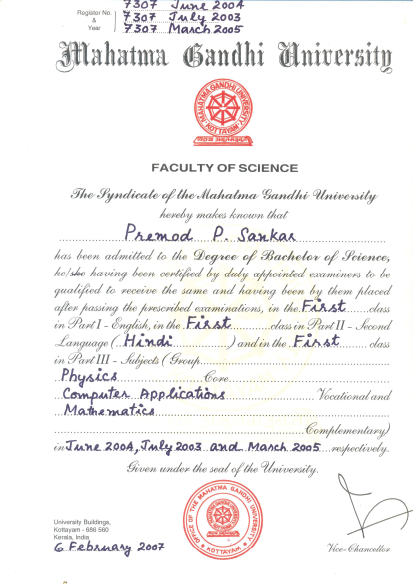 Register No. & Year
7307 June 2004
7307 July 2003
7307 March 2005
Mahatma Gandhi University
MAHATMA GANDHI UNIVERSITY
KOTTAYAM
FACULTY OF SCIENCE
The Syndicate of the Mahatma Gandhi University
hereby makes known that
Premod P. Sankar
has been admitted to the Degree of Bachelor of Science,
he/she having been certified by duly appointed examiners to be
qualified to receive the same and having been by them placed
after passing the prescribed examinations, in the First class
in Part I - English, in the First class in Part II - Second
Language ( Hindi ) and in the First class
in Part III - Subjects ( Group
Physics Core
Computer Applications Vocational and
Mathematics
Complementary)
in June 2004, July 2003 and March 2005 respectively.
Given under the seal of the University.
OFFICE OF THE MAHATMA GANDHI UNIVERSITY
KOTTAYAM
University Buildings,
Kottayam - 686 560
Kerala, India
6 February 2007
Vice-Chancellor